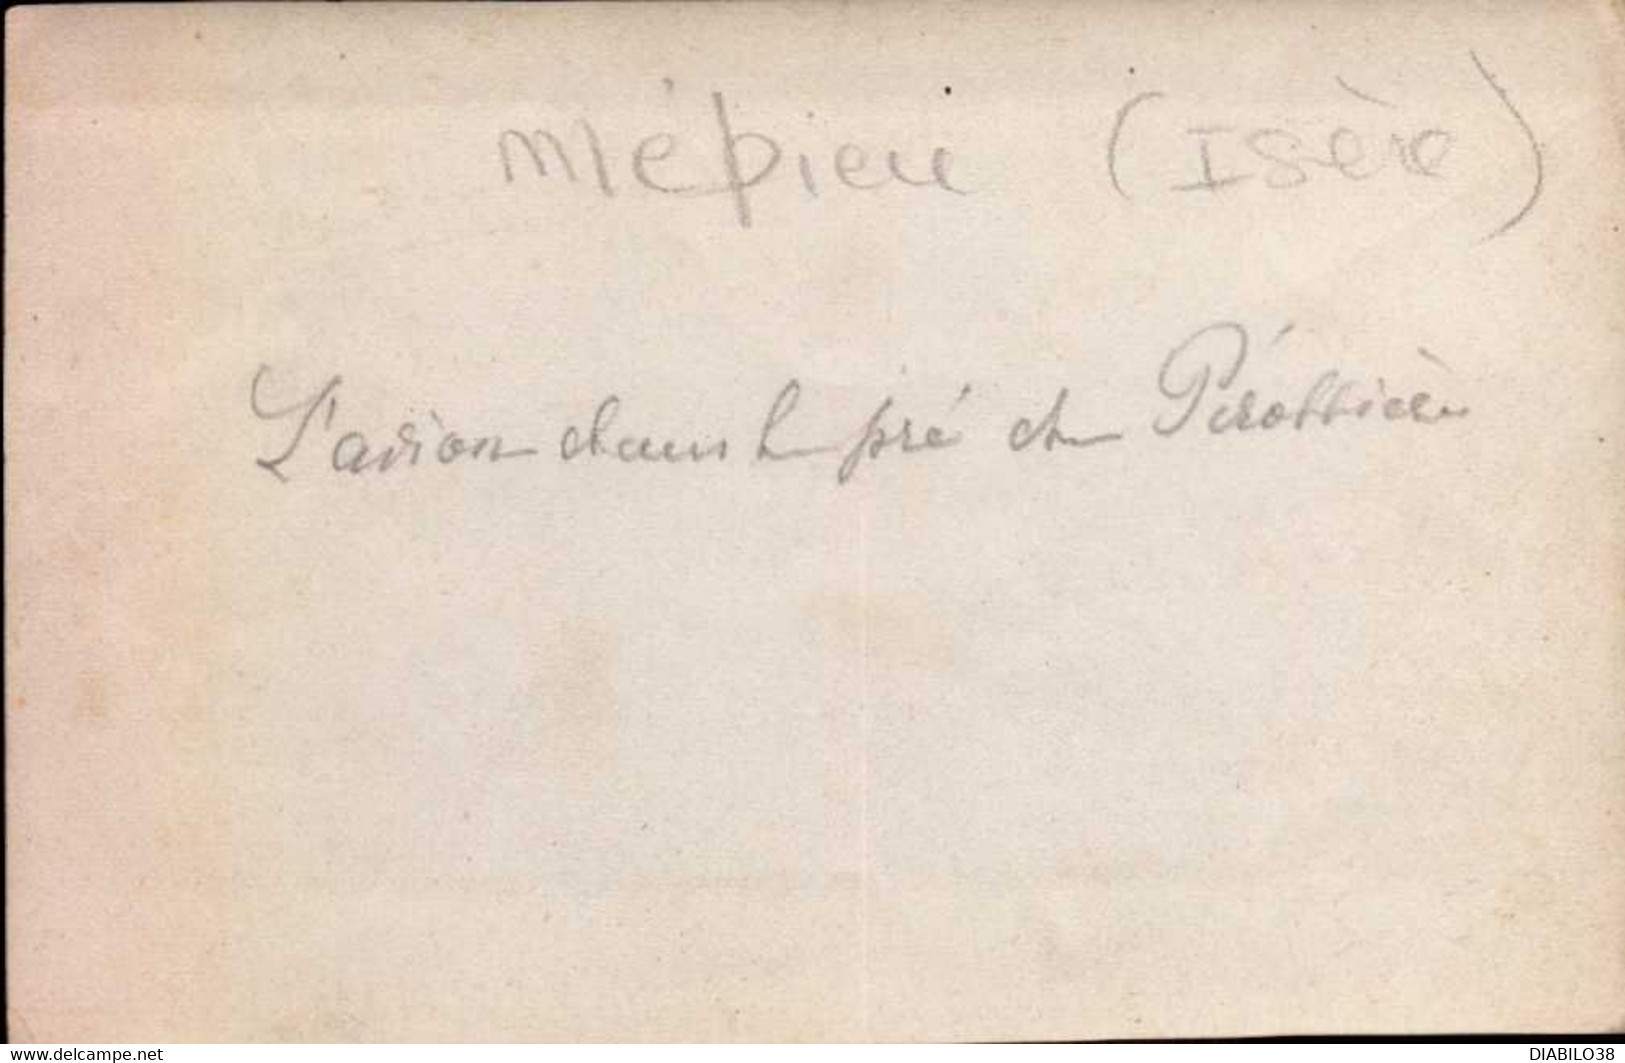 Mépieu (Isère)
L'avion dans le pré de
www.delcampe.net
DIABILO38